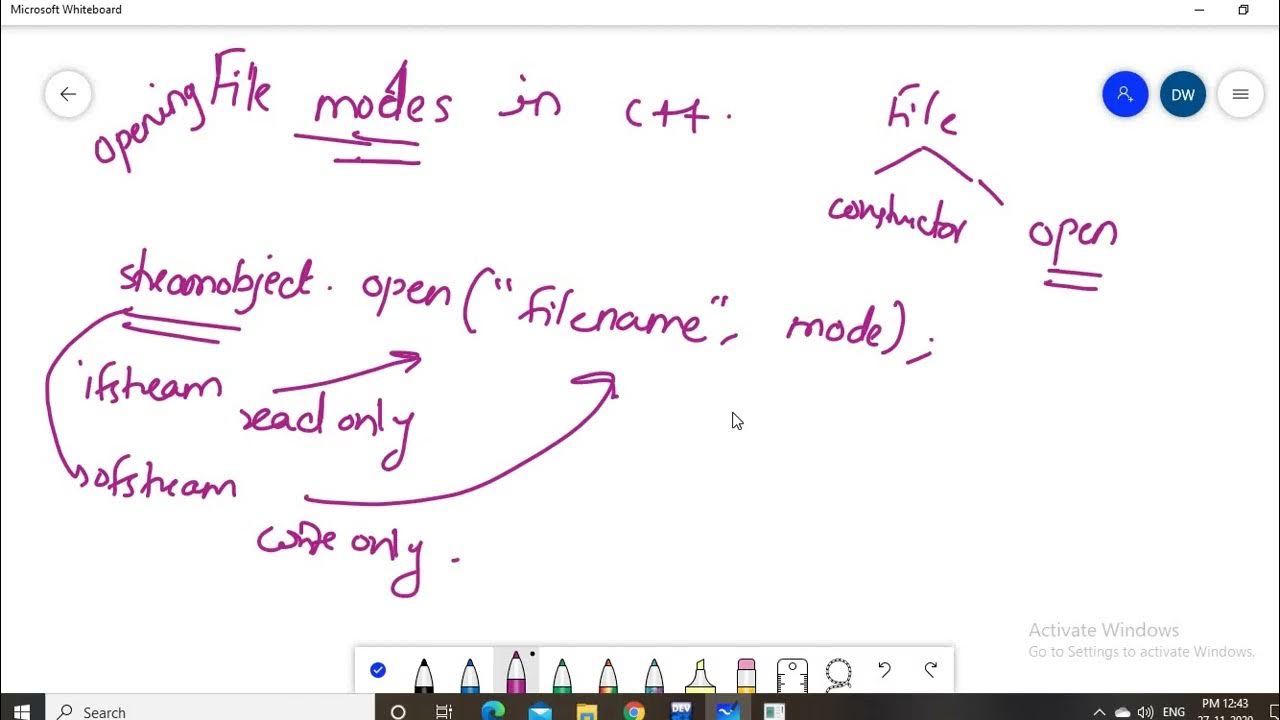 Microsoft Whiteboard
opening File modes in C++.
DW
File
constructor
open
streamobject. open("filename", mode);
ifstream
read only
ofstream
write only.
Activate Windows
Go to Settings to activate Windows.
Search
DEV
ENG
PM 12:43
27-11-2020